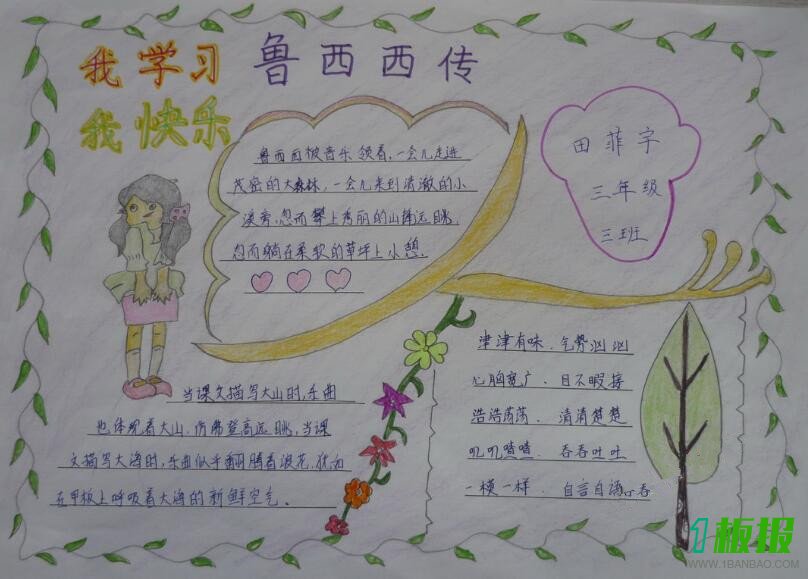 我学习
我快乐
鲁西西传
鲁西西被音乐领着,一会儿走进
茂密的大森林,一会儿来到清澈的小
溪旁,忽而攀上秀丽的山峰远眺,
忽而躺在柔软的草坪上小憩.
田菲宇
三年级
三班
当课文描写大山时,乐曲
也体现着大山.仿佛登高远眺,当课
文描写大海时,乐曲似乎翻腾着浪花,犹如
在甲板上呼吸着大海的新鲜空气.
津津有味. 气势汹汹
心胸宽广. 目不暇接
浩浩荡荡. 清清楚楚
叽叽喳喳. 吞吞吐吐
一模一样. 自言自语
1板报
WWW.1BANBAO.COM